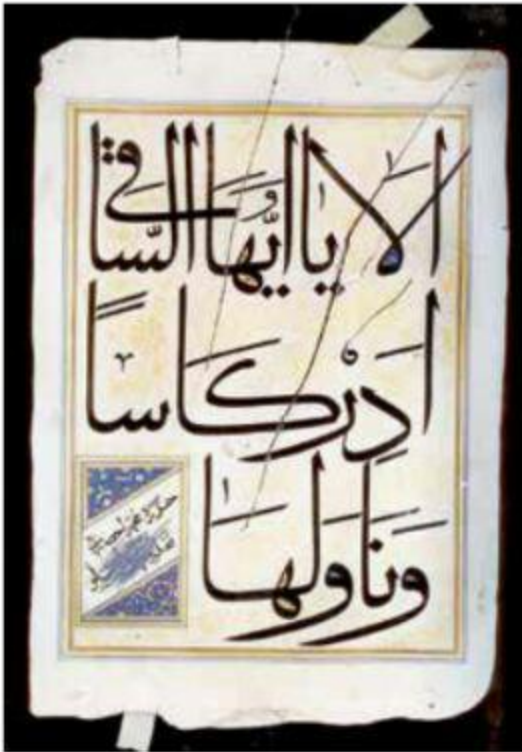 اَلَا یَا اَیُّهَا السَّاقِی
اَدِرْ کَاسًا
وَنَاوِلْهَا